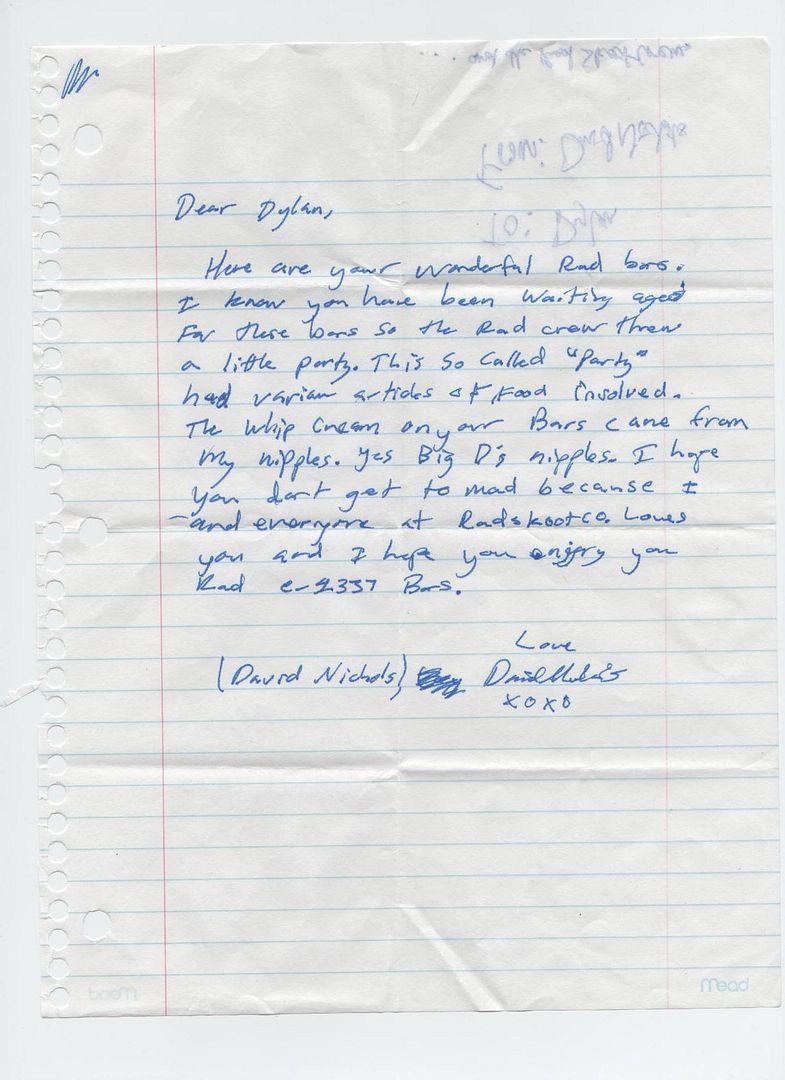 Dear Dylan,
Here are your wonderful Rad bars.
I know you have been waiting ages
For these bars so the Rad crew threw
a little party. This so called "Party"
had varian articles of Food involved.
The Whip Cream on your Bars came from
My nipples. Yes Big D's nipples. I hope
you don't get to mad because I
and everyone at Radskootco. Loves
you and I hope you you
Rad Bars.
Love
(David Nichols)
xoxo
From: David
To: Dylan
Mead
Mead